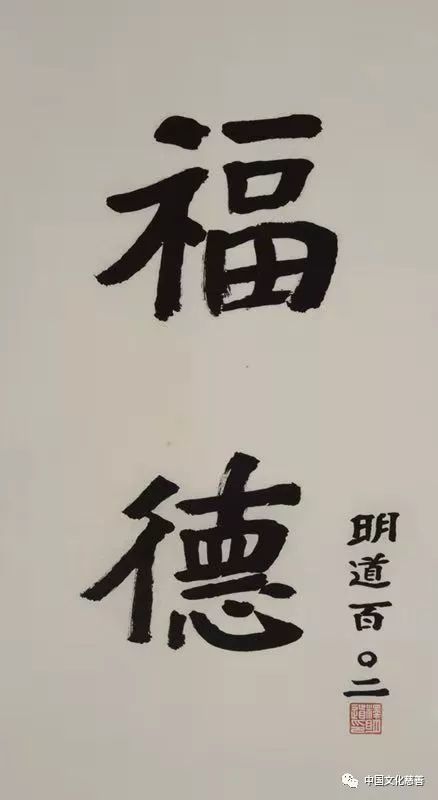 福
德
明道百〇二
中国文化慈善